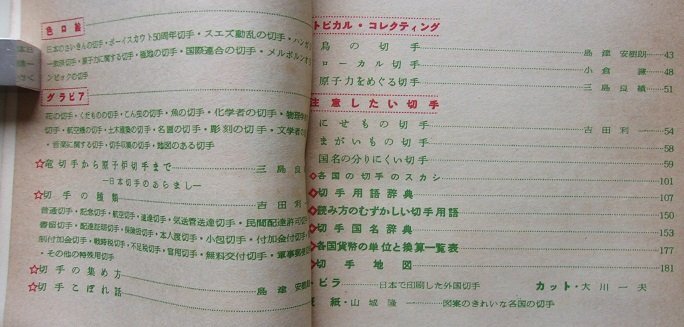 色口絵
日本のさいきんの切手・ボーイスカウト50周年切手・スエズ動乱の切手・ハンガ
一教床切手・原子力に関する切手・極地の切手・国際連合の切手・メルボルンオ
ンピックの切手
グラビア
花の切手・くだものの切手・こん虫の切手・魚の切手・化学者の切手・物理学
切手・航空機の切手・土木建築の切手・名画の切手・彫刻の切手・文学者の
・音楽に関する切手・切手収集の切手・地図のある切手
☆竜切手から原子炉切手まで 三島良
―日本切手のあらまし―
☆切手の種類 吉田利
普通切手・記念切手・航空切手・速達切手・気送管送達切手・民間配達許可切
書留切手・配達証明切手・保険切手・本人渡切手・小包切手・付加金付切手
制付加金切手・戦時税切手・不足税切手・官用切手・無料交付切手・軍事郵便
・その他の特殊用切手
☆切手の集め方
☆切手こぼれ話 島津安樹
トピカル・コレクティング
鳥の切手 島津安樹朗 43
ローカル切手 小倉謙 48
原子力をめぐる切手 三島良績 51
注意したい切手
にせもの切手 吉田利一 54
まがいもの切手 58
国名の分りにくい切手 59
◇各国の切手のスカシ 101
◇切手用語辞典 107
◇読み方のむずかしい切手用語 150
◇切手国名辞典 153
◇各国貨幣の単位と換算一覧表 177
◇切手地図 181
ビラ 日本で印刷した外国切手 カット・大川一夫
紙・山城隆一 図案のきれいな各国の切手